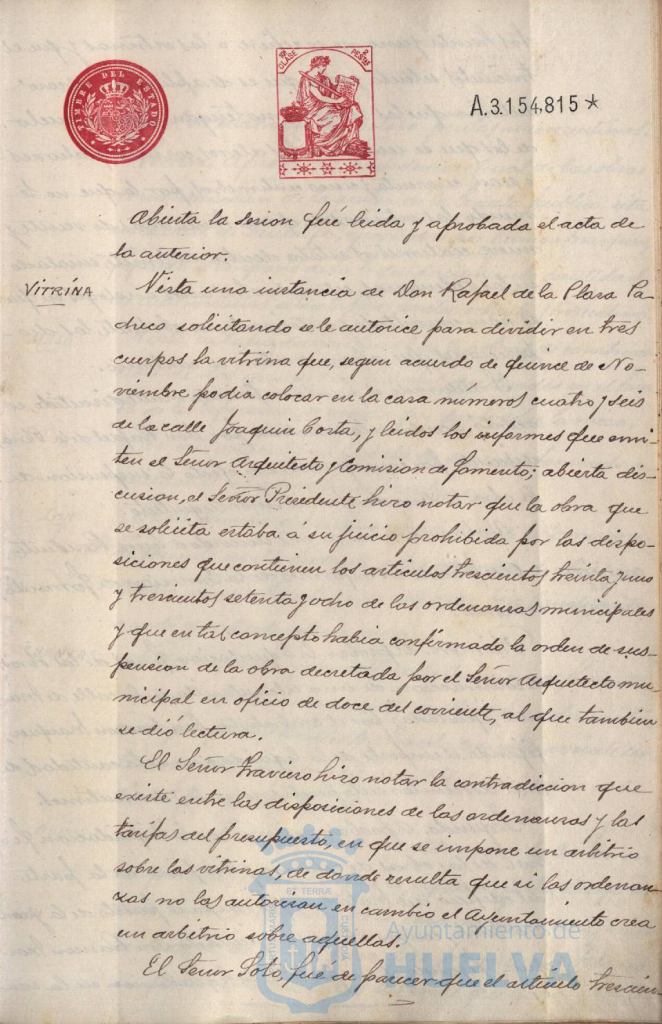 TIMBRE DEL ESTADO
10ª CLASE
2 PESETAS
A.3.154,815*
Abierta la sesion fué leida y aprobada el acta de
la anterior.
VITRINA
Vista una instancia de Don Rafael de la Plaza Pa-
checo solicitando se le autorice para dividir en tres
cuerpos la vitrina que, segun acuerdo de quince de No-
viembre podia colocar en la casa números cuatro y seis
de la calle Joaquin Costa, y leidos los informes que emi-
ten el Señor Arquitecto y Comision de Fomento; abierta dis-
cusion, el Señor Presidente hizo notar que la obra que
se solicita estaba á su juicio prohibida por las dispo-
siciones que contienen los articulos trescientos treinta y uno
y trescientos setenta y ocho de las ordenanzas municipales
y que en tal concepto habia confirmado la orden de sus-
pension de la obra decretada por el Señor Arquetecto mu-
nicipal en oficio de doce del corriente, al que tambien
se dió lectura.
El Señor Traviero hizo notar la contradiccion que
existe entre las disposiciones de las ordenanzas y las
tarifas del presupuesto, en que se impone un arbitrio
sobre las vitrinas, de donde resulta que si las ordenan-
zas no las autorizan en cambio el Ayuntamiento crea
un arbitrio sobre aquellas.
El Señor Soto, fue de parecer que el artículo trescien-
Ayuntamiento de
HUELVA